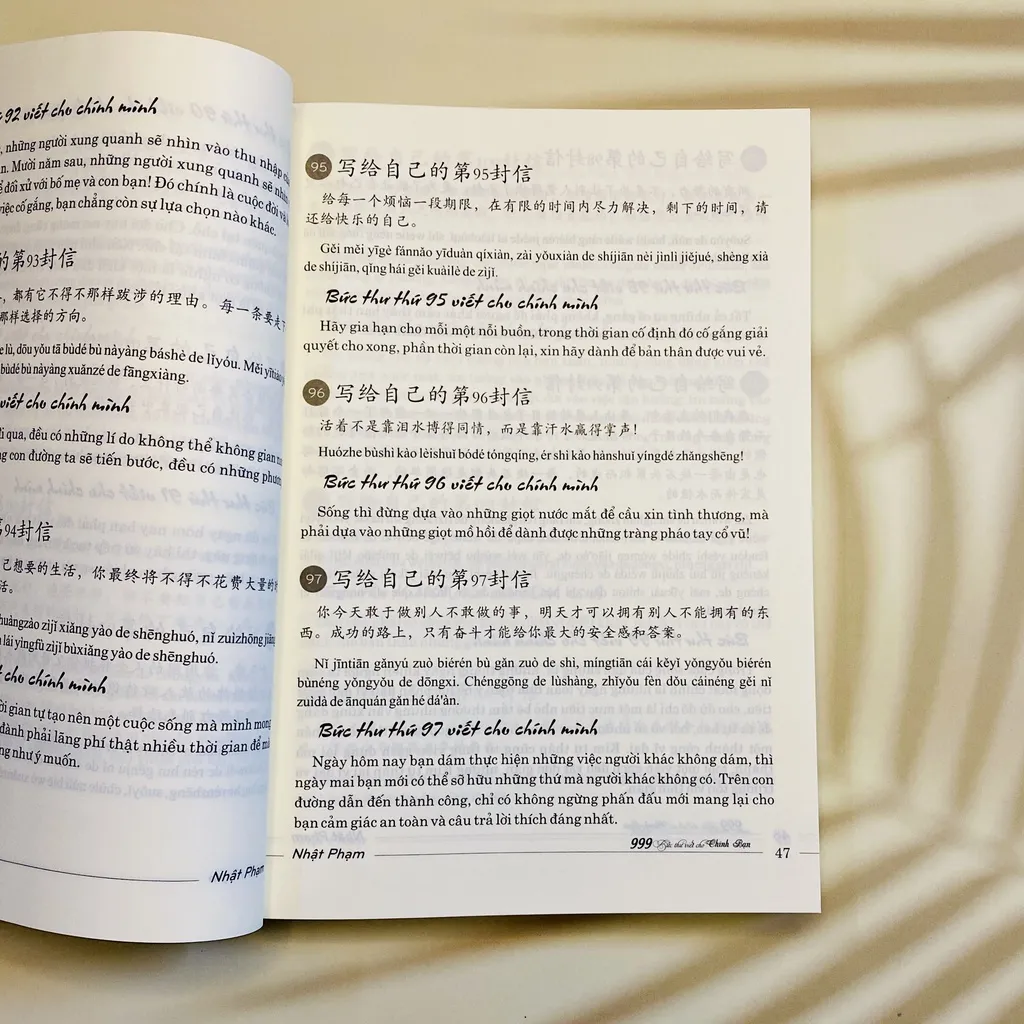 92 viết cho chính mình
, những người xung quanh sẽ nhìn vào thu nhập
n. Mười năm sau, những người xung quanh sẽ
để đối xử với bố mẹ và con bạn! Đó chính là cuộc đời và
việc cố gắng, bạn chẳng còn sự lựa chọn nào khác.
的第93封信
，都有它不得不那样跋涉的理由。每一条要走
那样选择的方向。
lù, dōu yǒu tā bùdé bù nàyàng báshè de lǐyóu. Měi
bùdé bù nàyàng xuǎnzé de fāngxiàng.
viết cho chính mình
đi qua, đều có những lí do không thể không gian
con đường ta sẽ tiến bước, đều có những
94封信
己想要的生活，你最终将不得不花费大量的
活。
chuàngzào zìjǐ xiǎng yào de shēnghuó, nǐ zuìzhōng
lái yìngfù zìjǐ bùxiǎng yào de shēnghuó.
cho chính mình
gian tự tạo nên một cuộc sống mà mình mong
đành phải lãng phí thật nhiều thời gian để
như ý muốn.
Nhật Phạm
95 写给自己的第95封信
给每一个烦恼一段期限，在有限的时间内尽力解决，剩下的时间，请
还给快乐的自己。
Gěi měi yīgè fánnǎo yīduàn qíxiàn, zài yǒuxiàn de shíjiān nèi jìnlì jiějué, shèng xià
de shíjiān, qǐng hái gěi kuàilè de zìjǐ.
Bức thư thứ 95 viết cho chính mình
Hãy gia hạn cho mỗi một nỗi buồn, trong thời gian cố định đó cố gắng giải
quyết cho xong, phần thời gian còn lại, xin hãy dành để bản thân được vui vẻ.
96 写给自己的第96封信
活着不是靠泪水博得同情，而是靠汗水赢得掌声！
Huózhe bùshì kào lèishuǐ bódé tóngqíng, ér shì kào hànshuǐ yíngdé zhǎngshēng!
Bức thư thứ 96 viết cho chính mình
Sống thì đừng dựa vào những giọt nước mắt để cầu xin tình thương, mà
phải dựa vào những giọt mồ hồi để dành được những tràng pháo tay cổ vũ!
97 写给自己的第97封信
你今天敢于做别人不敢做的事，明天才可以拥有别人不能拥有的东
西。成功的路上，只有奋斗才能给你最大的安全感和答案。
Nǐ jīntiān gǎnyú zuò biérén bù gǎn zuò de shì, míngtiān cái kěyǐ yǒngyǒu biérén
bùnéng yǒngyǒu de dōngxi. Chénggōng de lùshàng, zhǐyǒu fèn dǒu cáinéng gěi nǐ
zuìdà de ānquán gǎn hé dá'àn.
Bức thư thứ 97 viết cho chính mình
Ngày hôm nay bạn dám thực hiện những việc người khác không dám, thì
ngày mai bạn mới có thể sở hữu những thứ mà người khác không có. Trên con
đường dẫn đến thành công, chỉ có không ngừng phấn đấu mới mang lại cho
bạn cảm giác an toàn và câu trả lời thích đáng nhất.
Nhật Phạm 999 Bức thư viết cho Chính Bạn 47